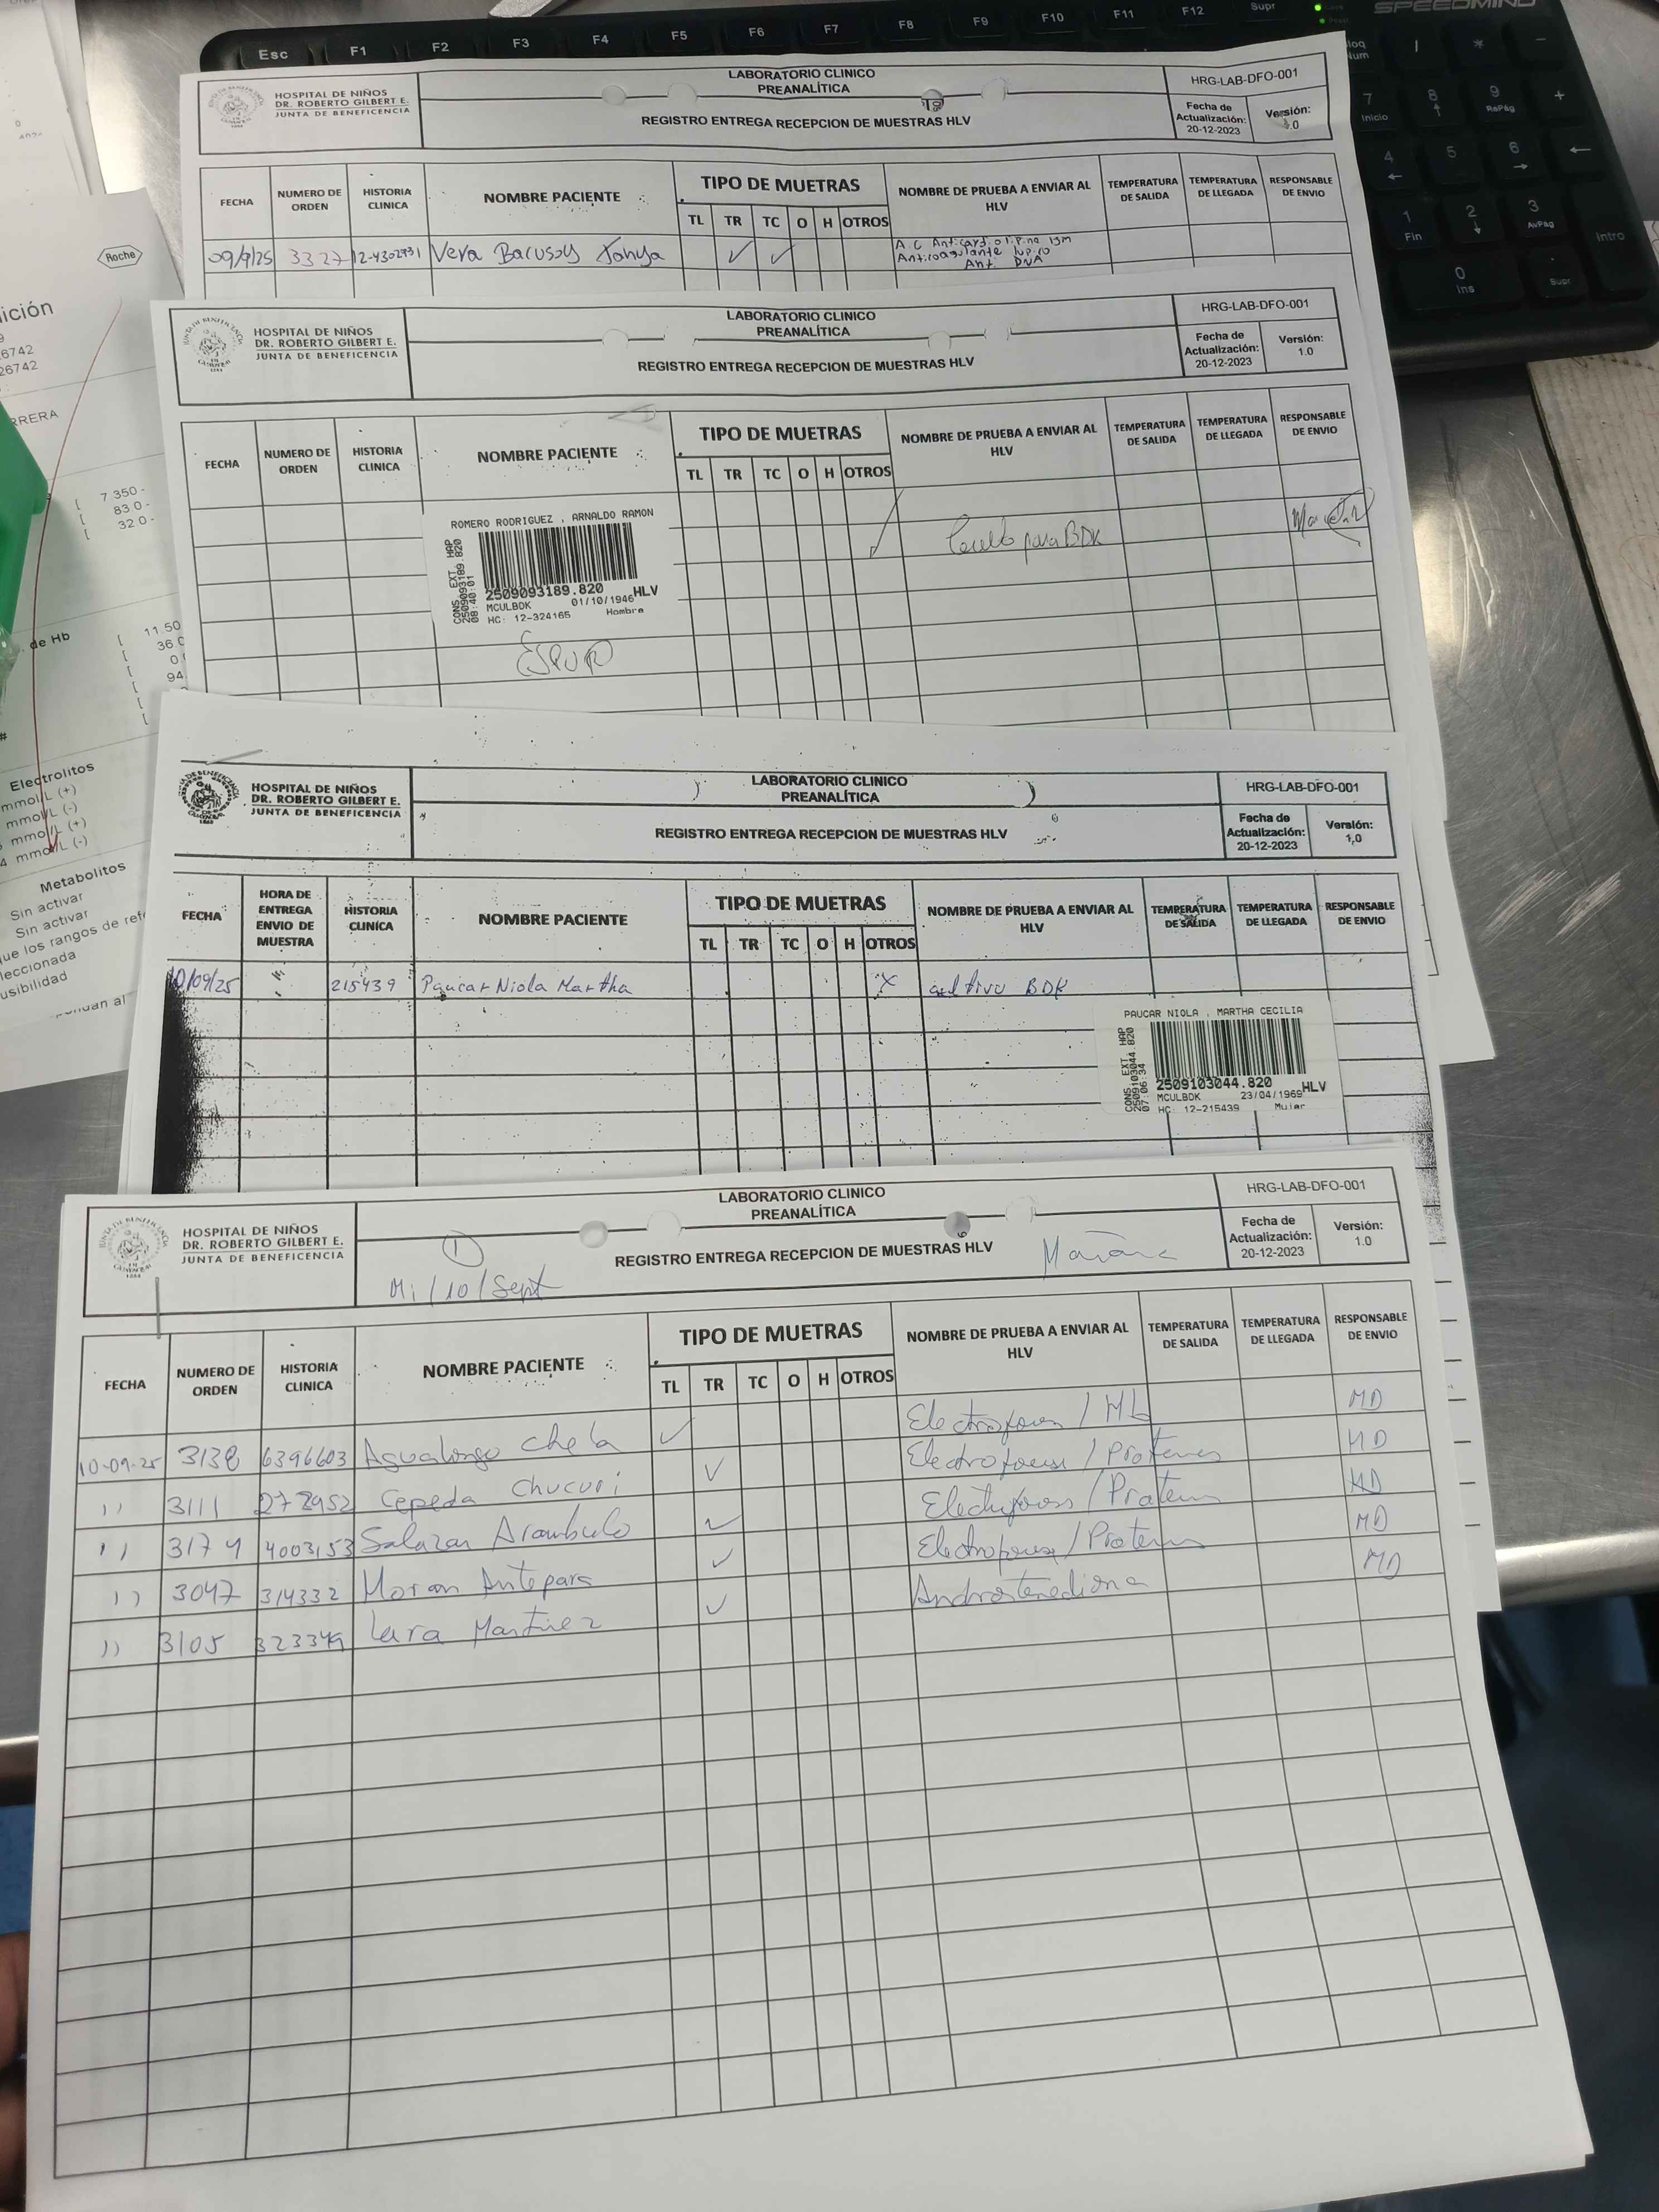 Esc F1 F2 F3 F4 F5 F6 F7 F8 F9 F10 F11 F12 Supr
SPEEDMIND
Bloq Num / * -
7 Inicio 8 9 RePág +
4 5 6
1 Fin 2 3 AvPág Intro
0 Ins . Supr
Roche
26742
mmol/L (+)
mmol/L (-)
mmol/L (+)
mmol/L (-)
de Hb
Electrolitos
Metabolitos
Sin activar
Sin activar
HOSPITAL DE NIÑOS
DR. ROBERTO GILBERT E.
JUNTA DE BENEFICENCIA
LABORATORIO CLINICO
PREANALÍTICA
REGISTRO ENTREGA RECEPCION DE MUESTRAS HLV
HRG-LAB-DFO-001
Fecha de Actualización: 20-12-2023
Versión:
FECHA NUMERO DE ORDEN HISTORIA CLINICA NOMBRE PACIENTE TIPO DE MUETRAS NOMBRE DE PRUEBA A ENVIAR AL HLV TEMPERATURA DE SALIDA TEMPERATURA DE LLEGADA RESPONSABLE DE ENVIO
TL TR TC O H OTROS
09/9/25 3327 12-4302931 Vera Bacusoy ✓ ✓
Anticoagulante lupico
Ant. DNA
HOSPITAL DE NIÑOS
DR. ROBERTO GILBERT E.
JUNTA DE BENEFICENCIA
LABORATORIO CLINICO
PREANALÍTICA
REGISTRO ENTREGA RECEPCION DE MUESTRAS HLV
HRG-LAB-DFO-001
Fecha de Actualización: 20-12-2023
Versión: 1.0
FECHA NUMERO DE ORDEN HISTORIA CLINICA NOMBRE PACIENTE TIPO DE MUETRAS NOMBRE DE PRUEBA A ENVIAR AL HLV TEMPERATURA DE SALIDA TEMPERATURA DE LLEGADA RESPONSABLE DE ENVIO
TL TR TC O H OTROS
ROMERO RODRIGUEZ , ARNALDO RAMON
CONS. EXT. HAP
2509093189.820
08:40:01
2509093189.820 HLV
MCULBDK 01/10/1946
HC: 12-324165 Hombre
para BDK
HOSPITAL DE NIÑOS
DR. ROBERTO GILBERT E.
JUNTA DE BENEFICENCIA
LABORATORIO CLINICO
PREANALÍTICA
REGISTRO ENTREGA RECEPCION DE MUESTRAS HLV
HRG-LAB-DFO-001
Fecha de Actualización: 20-12-2023
Versión: 1,0
FECHA HORA DE ENTREGA ENVIO DE MUESTRA HISTORIA CLINICA NOMBRE PACIENTE TIPO DE MUETRAS NOMBRE DE PRUEBA A ENVIAR AL HLV TEMPERATURA DE SALIDA TEMPERATURA DE LLEGADA RESPONSABLE DE ENVIO
TL TR TC O H OTROS
10/09/25 215439 Paucar Niola Martha X cultivo BDK
PAUCAR NIOLA , MARTHA CECILIA
CONS. EXT. HAP
2509103044.820
07:06:34
2509103044.820 HLV
MCULBDK 23/04/1969
HC: 12-215439 Mujer
HOSPITAL DE NIÑOS
DR. ROBERTO GILBERT E.
JUNTA DE BENEFICENCIA
LABORATORIO CLINICO
PREANALÍTICA
REGISTRO ENTREGA RECEPCION DE MUESTRAS HLV
HRG-LAB-DFO-001
Fecha de Actualización: 20-12-2023
Versión: 1.0
1
Mi/10/Sept
Mañana
FECHA NUMERO DE ORDEN HISTORIA CLINICA NOMBRE PACIENTE TIPO DE MUETRAS NOMBRE DE PRUEBA A ENVIAR AL HLV TEMPERATURA DE SALIDA TEMPERATURA DE LLEGADA RESPONSABLE DE ENVIO
TL TR TC O H OTROS
10-09-25 3138 6396603 Agualongo Chela ✓ MD
11 3111 272952 Cepeda Chucuri ✓ MD
11 3174 4003153 Salazar Arambulo ✓ MD
11 3047 314332 Moran Antepara ✓ MD
11 3105 323349 Lara Martinez ✓ Androstenediona MD